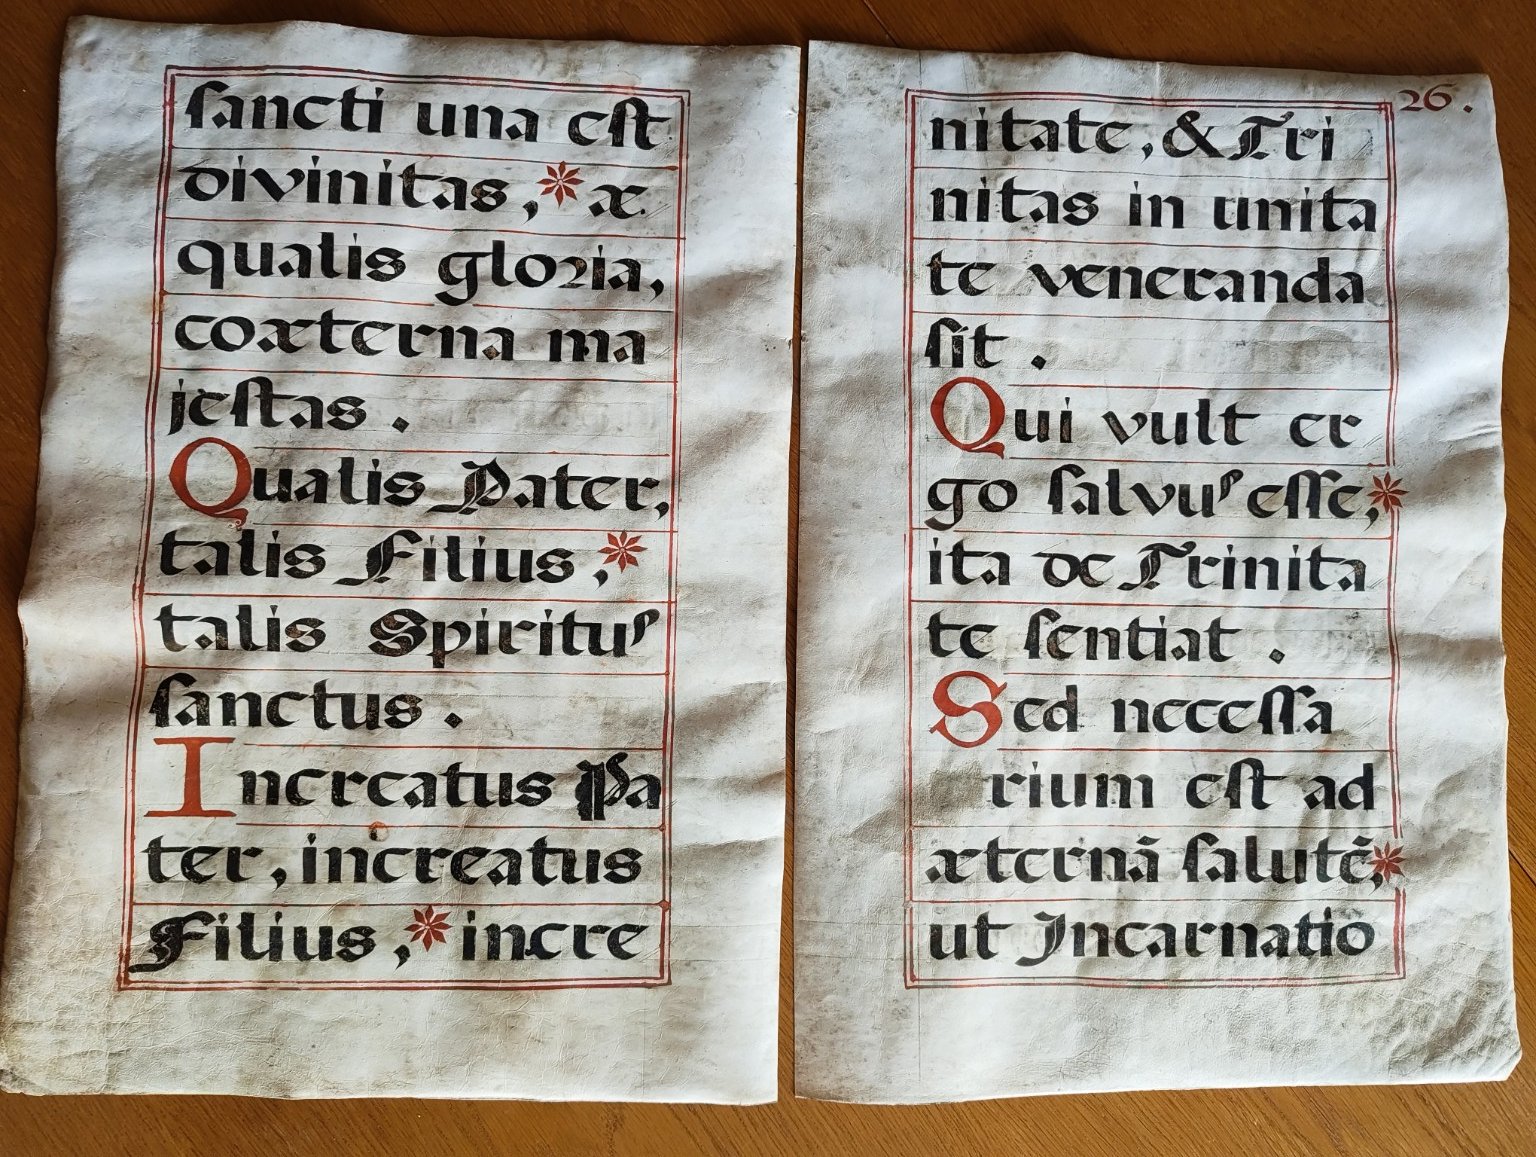 sancti una est
divinitas, * æ
qualis gloria,
coæterna ma
jestas .
Qualis Pater,
talis Filius, *
talis Spiritus
sanctus .
Increatus Pa
ter, increatus
Filius, * incre
26.
nitate, & Tri
nitas in unita
te veneranda
sit .
Qui vult er
go salvus esse, *
ita de Trinita
te sentiat .
Sed necessa
rium est ad
æternã salutẽ, *
ut Incarnatiõ